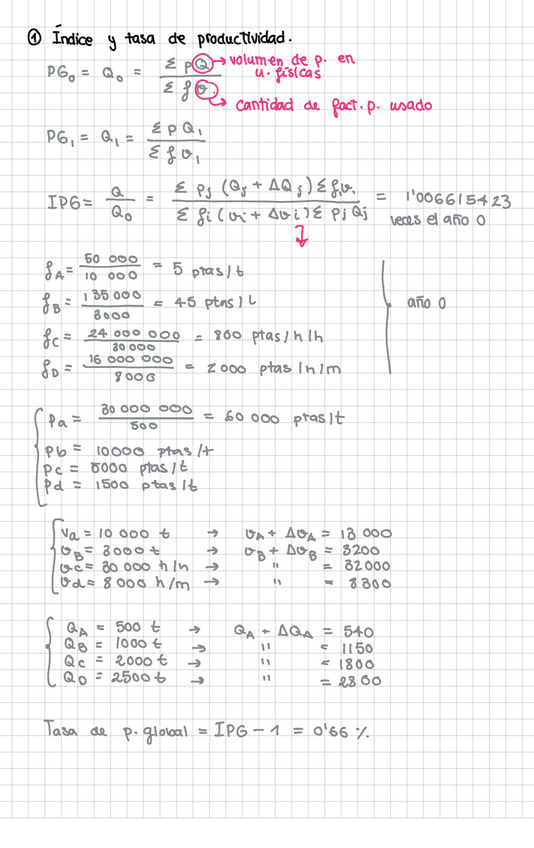 ① Índice y tasa de productividad.
PG₀ = Q₀ = Σ pQ / Σ fv → volumen de p. en u. físicas
→ cantidad de fact. p. usado
PG₁ = Q₁ = Σ p Q₁ / Σ f v₁
IPG = Q / Q₀ = Σ Pj (Qj + ΔQj) Σ fi vi / Σ fi (vi + Δvi) Σ Pj Qj = 1'006615423 veces el año 0
fA = 50 000 / 10 000 = 5 ptas/t
fB = 135 000 / 3000 = 45 ptas/L
fC = 24 000 000 / 30 000 = 800 ptas/h/h
fD = 16 000 000 / 8000 = 2000 ptas/h/m
año 0
Pa = 30 000 000 / 500 = 60 000 ptas/t
Pb = 10000 ptas/t
Pc = 5000 ptas/t
Pd = 1500 ptas/t
va = 10 000 t → vA + ΔvA = 13 000
vB = 3000 t → vB + ΔvB = 3200
vc = 30 000 h/h → " = 32000
vd = 8 000 h/m → " = 8300
QA = 500 t → QA + ΔQA = 540
QB = 1000 t → " = 1150
QC = 2000 t → " = 1800
QD = 2500 t → " = 2800
Tasa de p. global = IPG - 1 = 0'66 %.